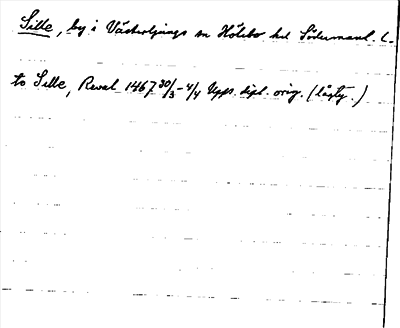 Sille, by i Västerljungs sn Hölebo hd Södermanl. l.
to Sille, Reval 1467 30/3-4/4 Upps. dipl. orig. (lågty.)